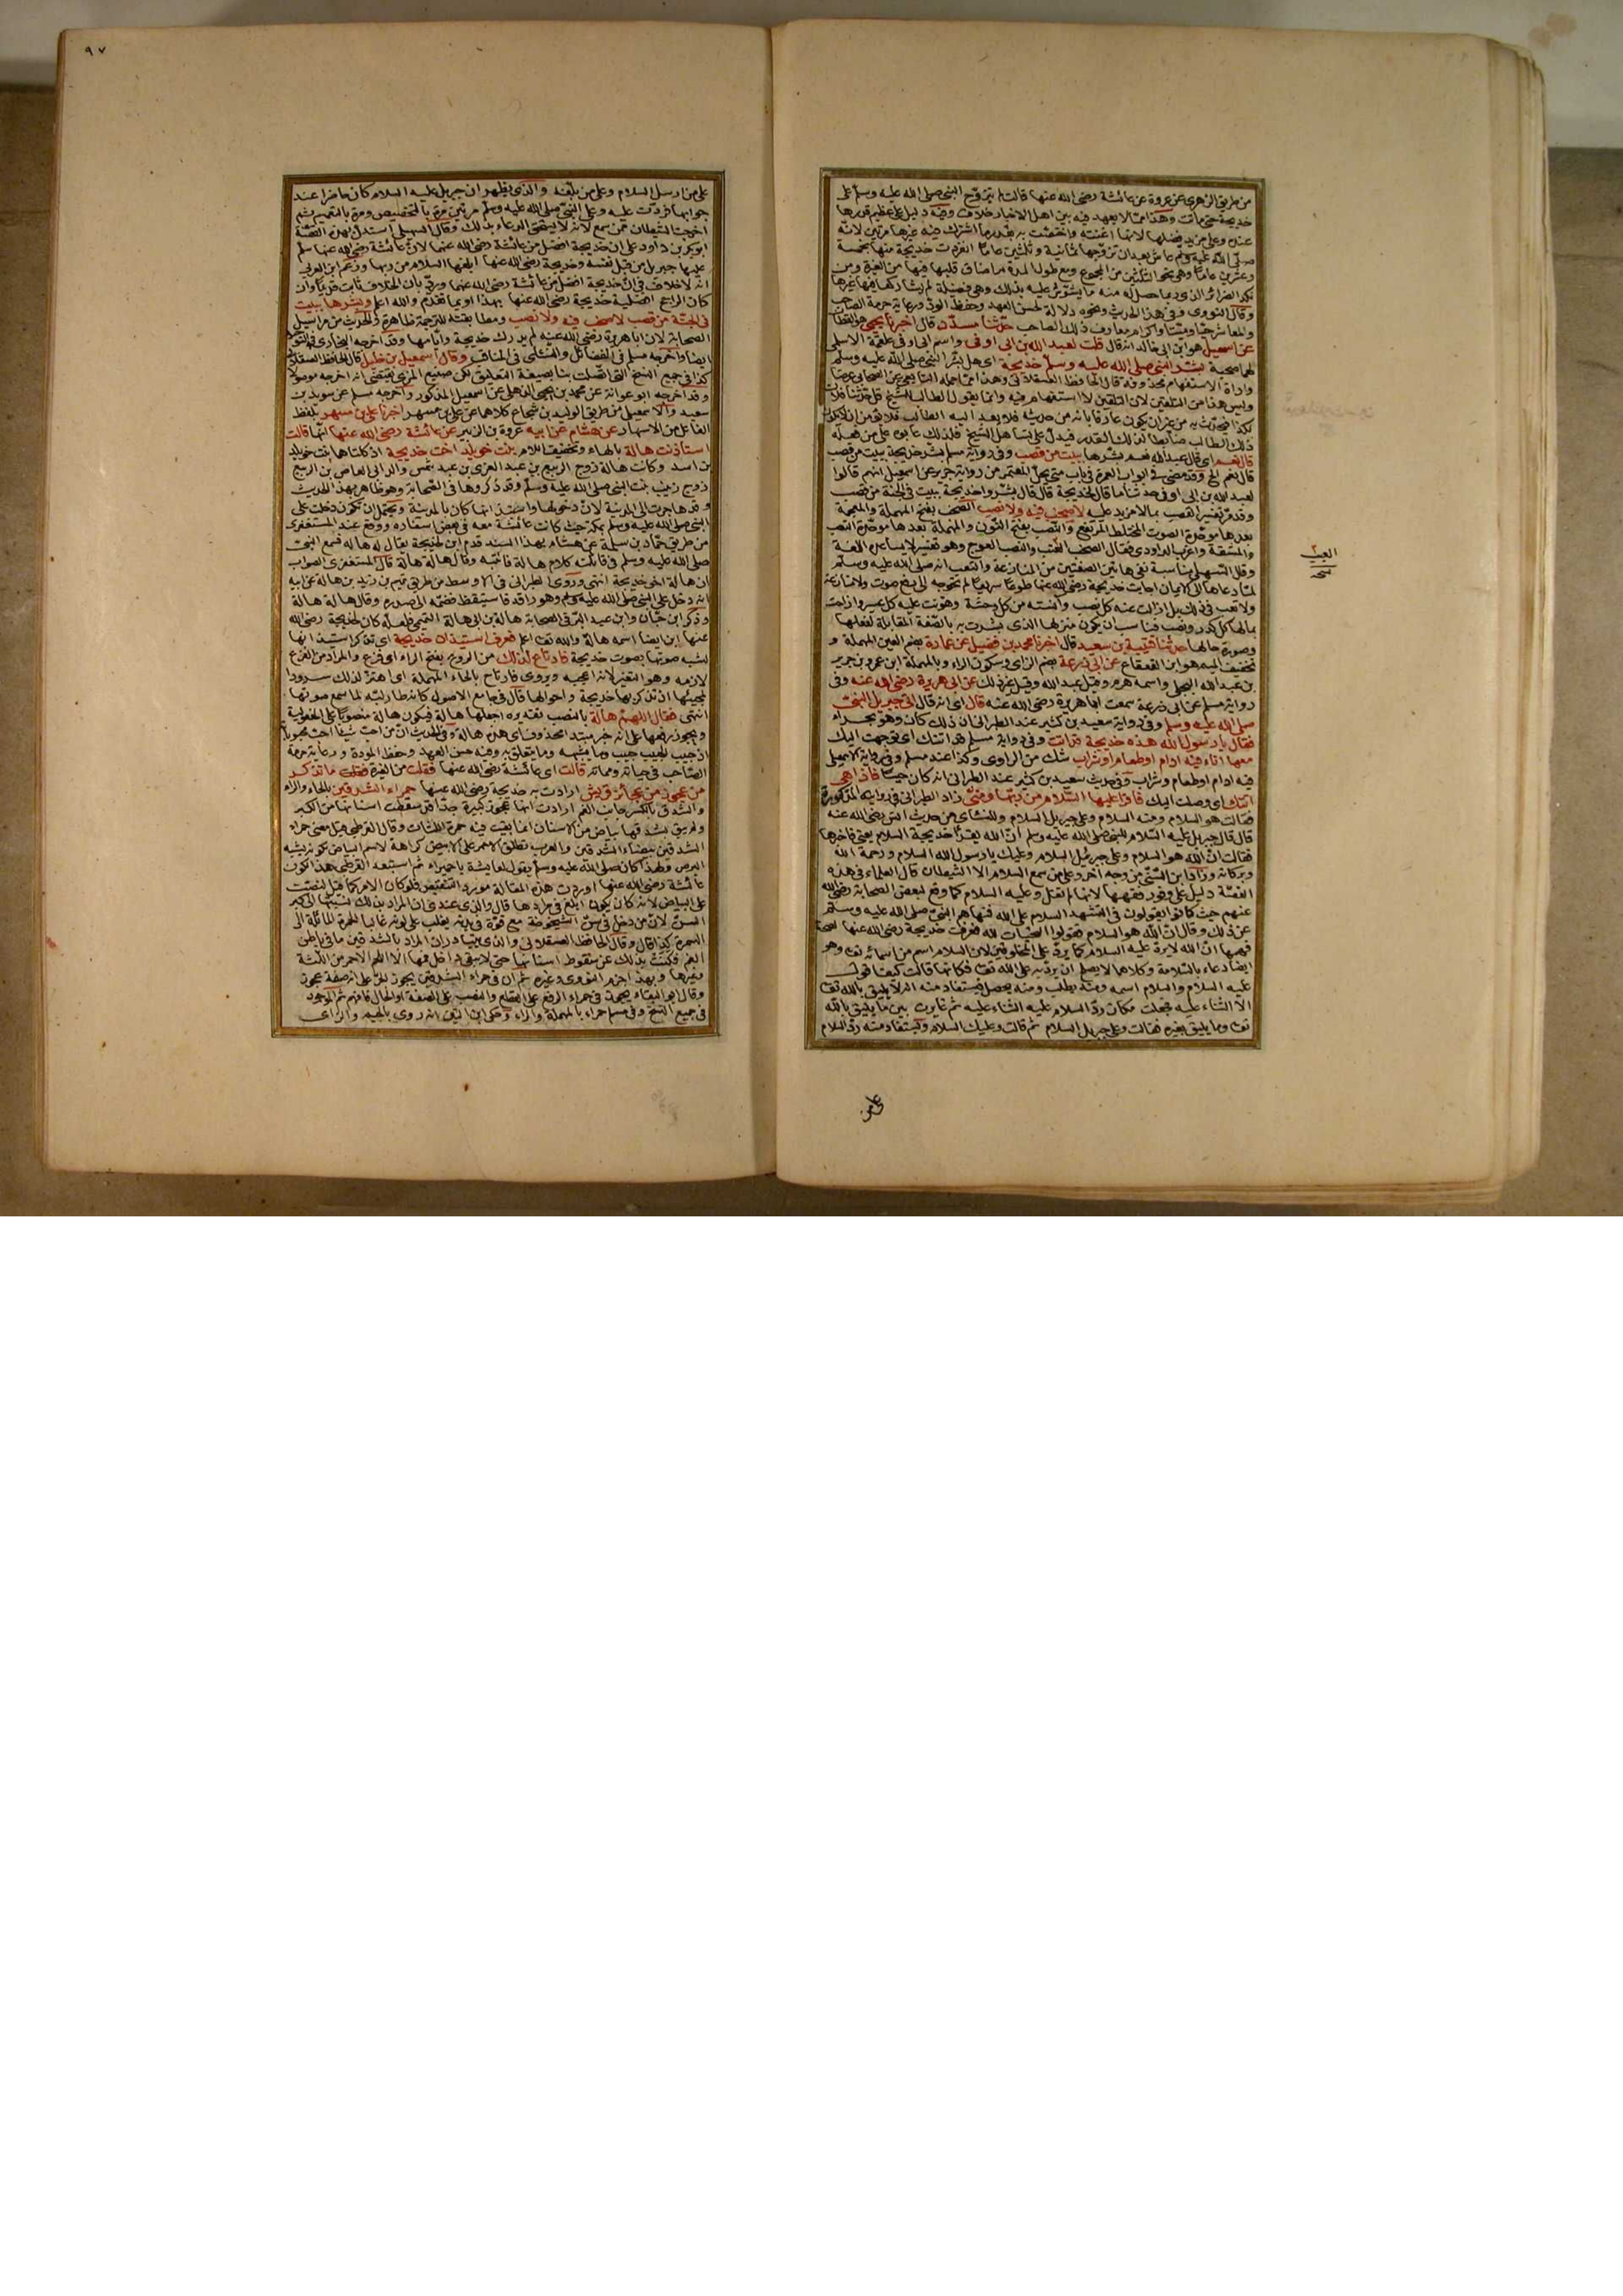 من طريق الزهري عن عروة عن عائشة رضي الله عنها قالت لم يتزوج النبي صلى الله عليه وسلم على
خديجة حتى ماتت وهذا مما لا يعهد فيه بين اهل الاخبار خلاف وفيه دليل على عظيم قدرها
عنده وعلى مزيد فضلها لانها اغنته واختصت به بقدر ما اشترك فيه غيرها مرتين لانه
صلى الله عليه وسلم عاش بعد ان تزوجها ثمانية وثلثين عاما انفردت خديجة منها بخمسة
وعشرين عاما وهي نحو الثلثين من المجموع ومع طول المدة صان قلبها فيها من الغيرة ومن
نكد الضرائر الذي ربما حصل له منه ما يشوش عليه بذلك وهي فضيلة لم يشاركها فيها غيرها
وقال النووي وفي هذا الحديث ونحوه دلالة لحسن العهد وحفظ الود ورعاية حرمة الصاحب
والمعاشر حيا وميتا واكرام معارف ذلك الصاحب حدثنا مسدد قال اخبرنا يحيى هو القطان
عن اسمعيل هو ابن ابي خالد انه قال قلت لعبد الله بن ابي اوفى واسم ابي اوفى علقمة الاسلمي
لهما صحبة بشر النبي صلى الله عليه وسلم خديجة اي هل بشر النبي صلى الله عليه وسلم
واداة الاستفهام محذوفة قال الحافظ العسقلاني وهذا مما حمله التابعي عن الصحابي عرضا
وليس هذا من التلقين لان التلقين لا استفهام فيه وانما يقول الطالب للشيخ قل حدثنا فلان
بكذا فيحدث به من غير ان يكون عارفا بانه من حديثه
قال نعم اي قال عبد الله نعم بشرها ببيت من قصب وفي رواية مسلم بشر خديجة ببيت من قصب
قال نعم الخ وقد مضى في ابواب العمرة في باب متى يحل المعتمر من رواية جرير عن اسمعيل انهم قالوا
لعبد الله بن ابي اوفى حدثنا ما قال لخديجة قال قال بشروا خديجة ببيت في الجنة من قصب
وقد مر تفسير القصب بما لا مزيد عليه لا صخب فيه ولا نصب الصخب بفتح المهملة والمعجمة
بعدها موحدة الصوت المختلط المرتفع والنصب بفتح النون والمهملة بعدها موحدة التعب
والمشقة واغرب الداودي فقال الصخب العيب والنصب العوج وهو تفسير لا يساعده اللغة
وقال السهيلي مناسبة نفي هاتين الصفتين من المنازعة والتعب انه صلى الله عليه وسلم
لما دعاها الى الايمان اجابت خديجة رضي الله عنها طوعا سريعا لم تحوجه الى رفع صوت ولا منازعة
ولا تعب في ذلك بل ازالت عنه كل نصب وآنسته من كل وحشة وهونت عليه كل عسير
فناسب ان يكون منزلها الذي بشرت به بالصفة المقابلة لفعلها
وصورة حالها حدثنا قتيبة بن سعيد قال اخبرنا محمد بن فضيل عن عمارة بضم العين المهملة و
تخفيف الميم هو ابن القعقاع عن ابي زرعة بضم الزاي وسكون الراء وبالمهملة ابن عمرو بن جرير
بن عبد الله البجلي واسمه هرم وقيل عبد الله وقيل غير ذلك عن ابي هريرة رضي الله عنه وفي
رواية مسلم عن ابي زرعة سمعت ابا هريرة رضي الله عنه قال اي انه قال اتى جبريل النبي
صلى الله عليه وسلم وفي رواية سعيد بن كثير عند الطبراني ان ذلك كان وهو بحراء
فقال يا رسول الله هذه خديجة قد اتت وفي رواية مسلم قد اتتك اي توجهت اليك
معها اناء فيه ادام او طعام او شراب شك من الراوي وكذا عند مسلم وفي رواية الاسمعيلي
فيه ادام او طعام وشراب وفي حديث سعيد بن كثير عند الطبراني انه كان حيسا فاذا هي
اتتك اي وصلت اليك فاقرأ عليها السلام من ربها ومني زاد الطبراني في روايته المذكورة
فقالت هو السلام ومنه السلام وعلى جبريل السلام وللنسائي من حديث انس رضي الله عنه
قال قال جبريل عليه السلام للنبي صلى الله عليه وسلم ان الله يقرأ خديجة السلام يعني فاخبرها
فقالت ان الله هو السلام وعلى جبرئيل السلام وعليك يا رسول الله السلام ورحمة الله
وبركاته وزاد ابن السني من وجه آخر وعلى من سمع السلام الا الشيطان قال العلماء في هذه
القصة دليل على وفور فقهها لانها لم تقل وعليه السلام كما وقع لبعض الصحابة رضي الله
عنهم حيث كانوا يقولون في التشهد السلام على الله فنهاهم النبي صلى الله عليه وسلم
عن ذلك وقال ان الله هو السلام فقولوا التحيات لله فعرفت خديجة رضي الله عنها لصحة
فهمها ان الله لا يرد عليه السلام كما يرد على المخلوقين لان السلام اسم من اسمائه تعا وهو
ايضا دعاء بالسلامة وكلاهما لا يصلح ان يرد به على الله تعا فكانها قالت كيف اقول
عليه السلام والسلام اسمه ومنه يطلب ومنه يحصل فيستفاد منه انه لا يليق بالله تعا
الا الثناء عليه فجعلت مكان رد السلام عليه الثناء عليه ثم غايرت بين ما يليق بالله
تعا وما يليق بغيره فقالت وعلى جبريل السلام ثم قالت وعليك السلام ويستفاد منه رد السلام
العيب
نسخه
على من
٩٧
على من ارسل السلام وعلى من بلغه والذي يظهر ان جبريل عليه السلام كان حاضرا عند
جوابها فردت عليه وعلى النبي صلى الله عليه وسلم مرتين مرة بالتخصيص ومرة بالتعميم ثم
اخرجت الشيطان ممن سمع لانه لا يستحق الدعاء بذلك وقال السهيلي استدل بهذه القصة
ابو بكر بن داود على ان خديجة افضل من عائشة رضي الله عنهما لان عائشة رضي الله عنها سلم
عليها جبريل من قبل نفسه وخديجة رضي الله عنها ابلغها السلام من ربها وزعم ابن العربي
انه لا خلاف في ان خديجة افضل من عائشة رضي الله عنهما ورد بان الخلاف ثابت قديما وان
كان الراجح افضلية خديجة رضي الله عنها بهذا او بما تقدم والله اعلم وبشرها ببيت
في الجنة من قصب لا صخب فيه ولا نصب ومطابقته للترجمة ظاهرة والحديث من مراسيل
الصحابة لان ابا هريرة رضي الله عنه لم يدرك خديجة وايامها وقد اخرجه البخاري في التوحيد
ايضا واخرجه مسلم في الفضائل والنسائي في المناقب وقال اسمعيل بن خليل قال الحافظ العسقلاني
كذا في جميع النسخ التي اتصلت بنا بصيغة التعليق لكن صنيع المزي يقتضي انه اخرجه موصولا
وقد اخرجه ابو عوانة عن محمد بن يحيى الذهلي عن اسمعيل المذكور واخرجه مسلم عن سويد بن
سعيد والاسمعيلي من طريق الوليد بن شجاع كلاهما عن علي بن مسهر اخبرنا علي بن مسهر بلفظ
الفاعل من الاسهار عن هشام عن ابيه عروة بن الزبير عن عائشة رضي الله عنها انها قالت
استأذنت هالة بالهاء وتخفيف اللام بنت خويلد اخت خديجة اذ كلتاهما بنت خويلد
بن اسد وكانت هالة زوج الربيع بن عبد العزى بن عبد شمس والد ابي العاص بن الربيع
زوج زينب بنت النبي صلى الله عليه وسلم وقد ذكروها في الصحابة وهو ظاهر بهذا الحديث
وقد هاجرت الى المدينة لان دخولها واستئذانها كان بالمدينة ويحتمل ان تكون دخلت على
النبي صلى الله عليه وسلم بمكة حيث كانت عائشة معه في بعض اسفاره ووقع عند المستغفري
من طريق حماد بن سلمة عن هشام بهذا السند قدم ابن لخديجة يقال له هالة فسمع النبي
صلى الله عليه وسلم في قائلته كلام هالة فانتبه وقال هالة هالة قال المستغفري الصواب
ان هالة اخو خديجة انتهى وروى الطبراني في الاوسط من طريق تميم بن زيد بن هالة عن ابيه
انه دخل على النبي صلى الله عليه وسلم وهو راقد فاستيقظ فضمه الى صدره وقال هالة هالة
وذكر ابن حبان وابن عبد البر في الصحابة هالة بن ابي هالة التميمي فلعله كان لخديجة رضي الله
عنها ابن ايضا اسمه هالة والله تعا اعلم فعرف استئذان خديجة اي تذكر استئذانها
لشبه صوتها بصوت خديجة فارتاع لذلك من الروع بفتح الراء اي فزع والمراد من الفزع
لازمه وهو التغير لانه اعجبه ويروى فارتاح بالحاء المهملة اي اهتز لذلك سرورا
لمجيئها اذ تذكر بها خديجة واحوالها قال في جامع الاصول كانه طار لبه لما سمع صوتها
انتهى فقال اللهم هالة بالنصب تقديره اجعلها هالة فيكون هالة منصوبا على المفعولية
ويجوز رفعها على انه خبر مبتدا محذوف اي هذه هالة وفي الحديث ان من احب شيئا احب محبوبه
اذ حبيب الحبيب حبيب وما يشبهه وما يتعلق به وفيه حسن العهد وحفظ المودة ورعاية حرمة
الصاحب في حياته ومماته قالت اي عائشة رضي الله عنها فغرت من الغيرة فقلت ما تذكر
من عجوز من عجائز قريش ارادت به خديجة رضي الله عنها حمراء الشدقين بالحاء والراء
والشدق بالكسر جانب الفم ارادت انها عجوز كبيرة جدا قد سقطت اسنانها من الكبر
ولم يبق بشدقها بياض من الاسنان انما بقيت فيه حمرة اللثات وقال القرطبي قيل معنى حمراء
الشدقين بيضاء الشدقين والعرب تطلق الاحمر على الابيض كراهة لاسم البياض لكونه يشبه
البرص ولهذا كان صلى الله عليه وسلم يقول لعايشة يا حميراء ثم استبعد القرطبي هذا لكون
عائشة رضي الله عنها اوردت هذه المقالة مورد التنقيص فلو كان الامر كما قيل لنصت
على البياض لانه كان يكون ابلغ في مرادها قال والذي عندي ان المراد بذلك نسبتها الى كبر
السن لان من دخل في سن الشيخوخة مع قوة في بدنه يغلب على لونه غالبا الحمرة المائلة الى
السمرة كذا قال وقال الحافظ العسقلاني والذي يتبادر ان المراد بالشدقين ما في باطن
الفم فكنت بذلك عن سقوط اسنانها حتى لا يبقى داخل فمها الا اللحم الاحمر من اللثة
وغيرها وبهذا جزم النووي وغيره ثم ان في حمراء الشدقين يجوز الجر على انه صفة عجوز
وقال ابو البقاء يجوز في حمراء الرفع على القطع والنصب على الصفة او الحال فافهم ثم الموجود
في جميع النسخ وفي مسلم حمراء بالمهملة والراء وحكى ابن التين انه روي بالجيم والزاي